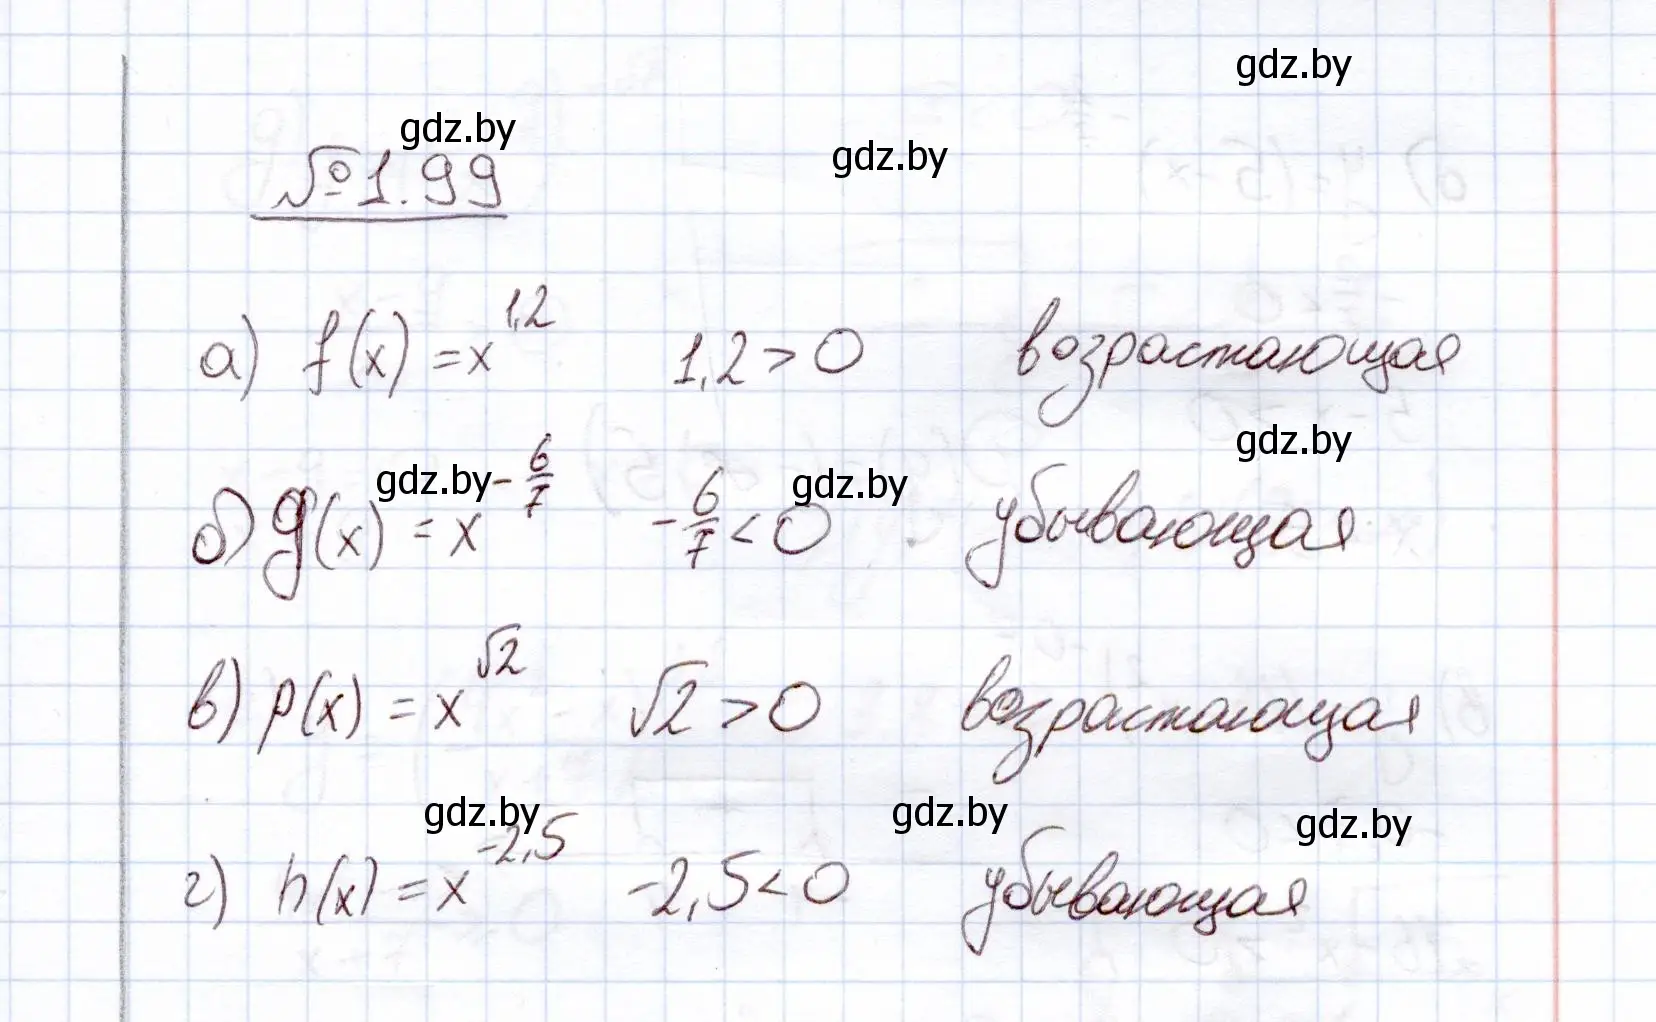 gdz.by
gdz.by
gdz.by
№1.99
а) f(x) = x^1,2 1,2 > 0 возрастающая
gdz.by
gdz.by
gdz.by
б) g(x) = x^-6/7 -6/7 < 0 убывающая
в) p(x) = x^√2 √2 > 0 возрастающая
gdz.by
gdz.by
gdz.by
г) h(x) = x^-2,5 -2,5 < 0 убывающая